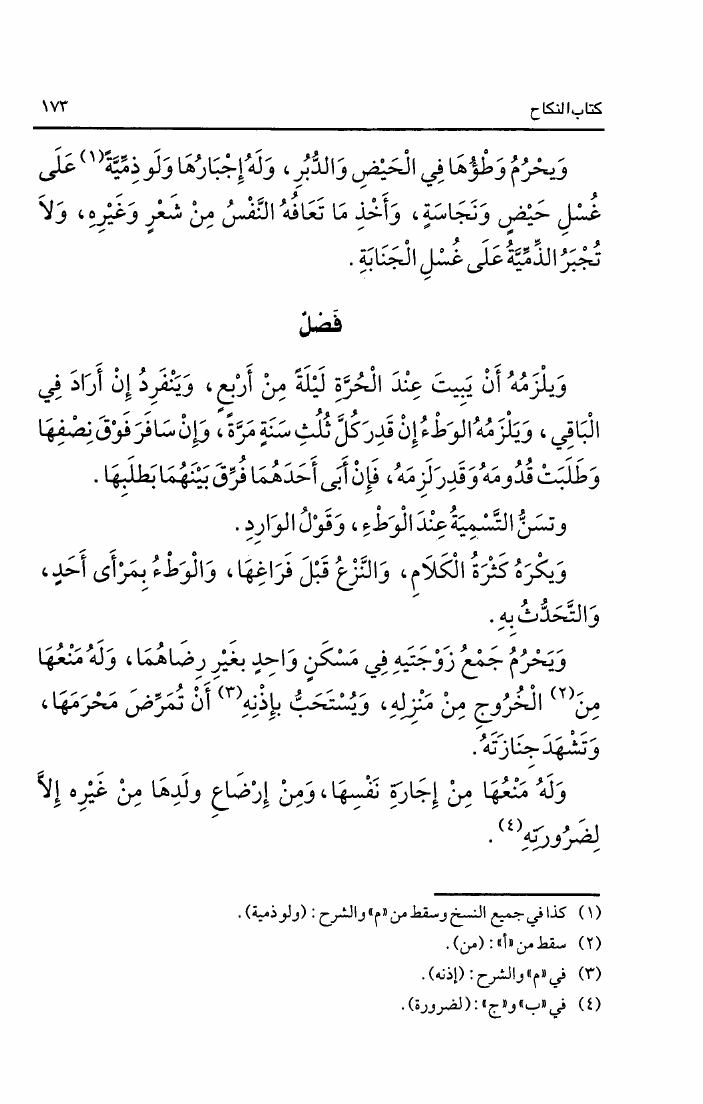 كتاب النكاح ١٧٣
وَيَحْرُمُ وَطْؤُهَا فِي الْحَيْضِ وَالدُّبُرِ، وَلَهُ إِجْبَارُهَا وَلَو ذِمِّيَّةً(١) عَلَى
غُسْلِ حَيْضٍ وَنَجَاسَةٍ، وَأَخْذِ مَا تَعَافُهُ النَّفْسُ مِنْ شَعْرٍ وَغَيْرِهِ، وَلاَ
تُجْبَرُ الذِّمِّيَّةُ عَلَى غُسْلِ الْجَنَابَةِ.
فَصْلٌ
وَيلْزَمُهُ أَنْ يَبِيتَ عِنْدَ الْحُرَّةِ لَيْلَةً مِنْ أَرْبعٍ، وَيَنْفَرِدُ إِنْ أَرَادَ فِي
الْبَاقِي، وَيَلْزَمُهُ الوَطْءُ إِنْ قَدِرَ كُلَّ ثُلُثِ سَنَةٍ مَرَّةً، وَإِنْ سَافَرَ فَوْقَ نِصْفِهَا
وَطَلَبَتْ قُدُومَهُ وَقَدِرَ لَزِمَهُ، فَإِنْ أَبَى أَحَدَهُمَا فُرِّقَ بَيْنَهُمَا بَطَلَبِهَا.
وتسَنُّ التَّسْمِيَةُ عِنْدَ الْوَطْءِ، وَقَوْلُ الوَارِدِ.
وَيكْرَهُ كَثْرَةُ الْكَلاَمِ، وَالنَّزْعُ قَبْلَ فَرَاغِهَا، وَالْوَطْءُ بِمَرْأَى أَحَدٍ،
وَالتَّحَدُّثُ بِهِ.
وَيَحْرُمُ جَمْعُ زَوْجَتَيهِ فِي مَسْكَنٍ وَاحِدٍ بغَيْرِ رِضَاهُمَا، وَلَهُ مَنْعُهَا
مِنَ(٢) الْخُرُوجِ مِنْ مَنْزِلِهِ، وَيُسْتَحَبُّ بإِذْنِهِ(٣) أَنْ تُمَرِّضَ مَحْرَمَهَا،
وَتَشْهَدَ جِنَازَتَهُ.
وَلَهُ مَنْعُهَا مِنْ إِجَارَةِ نَفْسِهَا، وَمِنْ إِرْضَاعِ ولَدِهَا مِنْ غَيْرِه إِلاَّ
لِضَرُورَتِهِ(٤).
(١) كذا في جميع النسخ وسقط من «م» والشرح: (ولو ذمية).
(٢) سقط من «أ»: (من).
(٣) في «م» والشرح: (إذنه).
(٤) في «ب» و«ج»: (لضرورة).